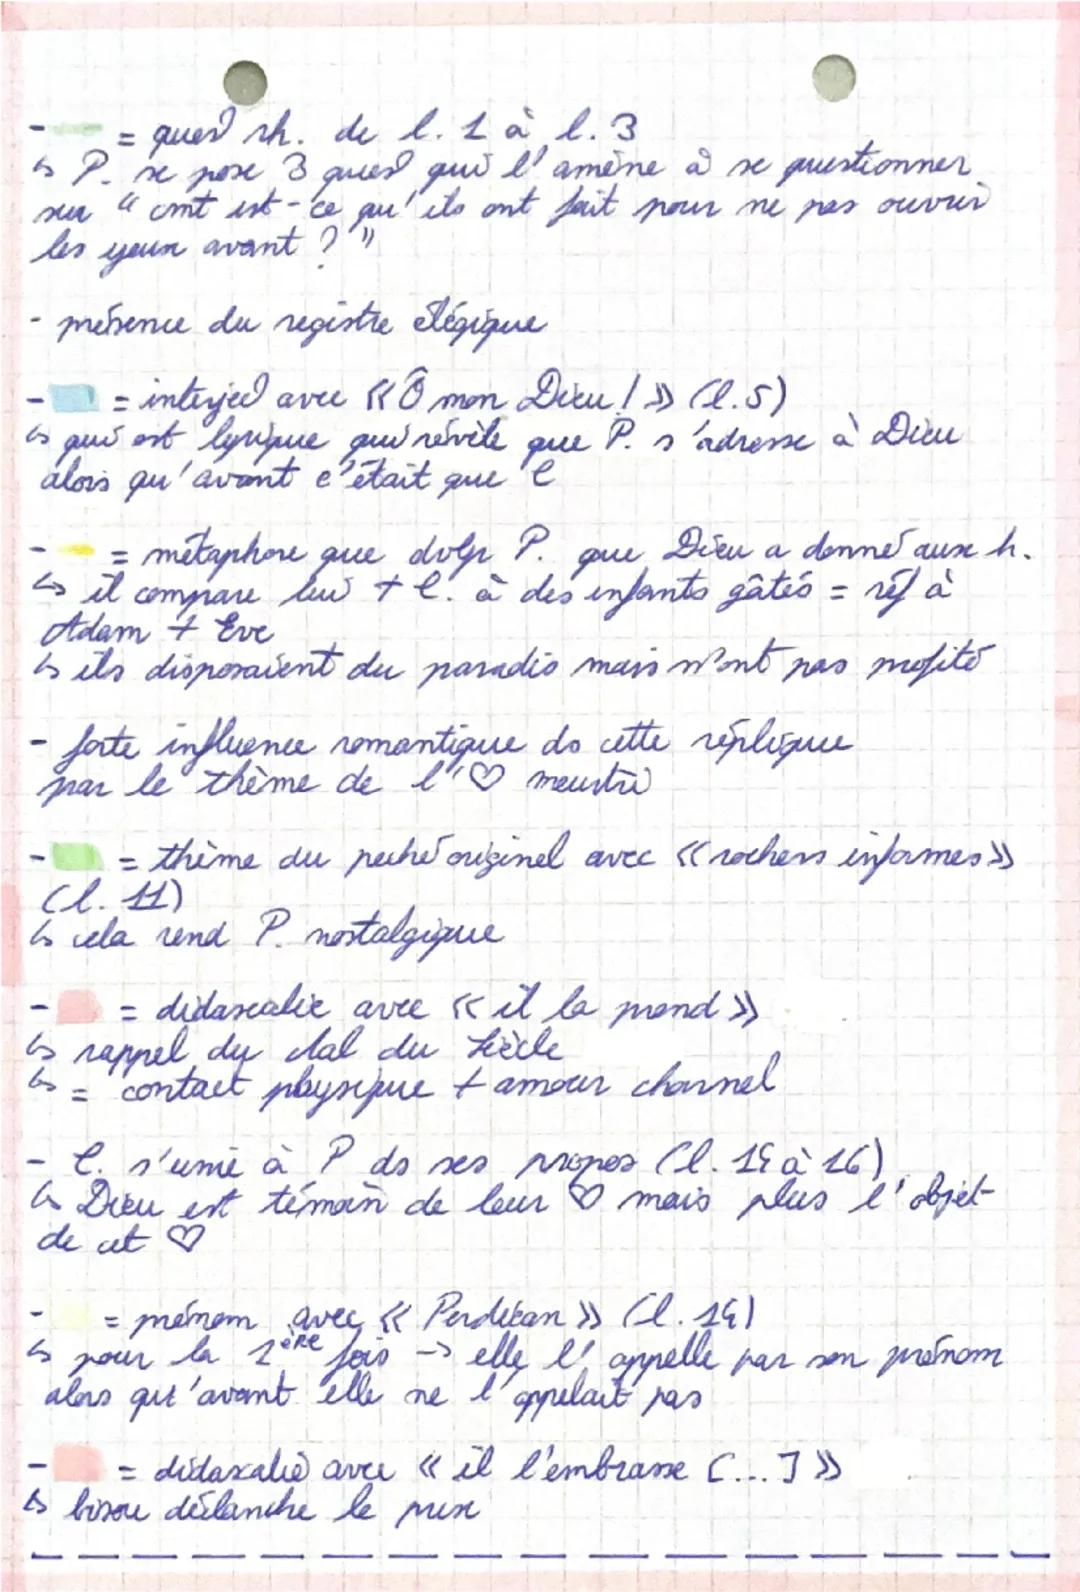 - = quest° rh. de l. 1 à l. 3
↳ P. se pose 3 quest° qui l'amène à se questionner
sur "cmt est-ce qu'ils ont fait pour ne pas ouvrir
les yeux avant ?"
- présence du registre élégique
- = interject° avec « Ô mon Dieu ! » (l.5)
↳ qui est lyrique qui révèle que P. s'adresse à Dieu
alors qu'avant c'était que C
- = métaphore que dvlp P. que Dieu a donné aux h.
↳ il compare lui + C. à des enfants gâtés = réf à
Adam + Eve
↳ ils disposaient du paradis mais n'ont pas profité
- forte influence romantique ds cette réplique
par le thème de l'♡ meurtri
- = thème du péché originel avec « rochers informes »
(l. 11)
↳ cela rend P. nostalgique
- = didascalie avec « il la prend »
↳ rappel du Mal du Siècle
↳ = contact physique + amour charnel
- C. s'unie à P ds ses propos (l. 15 à 16)
↳ Dieu est témoin de leur ♡ mais plus l'objet
de cet ♡
- = prénom avec « Perdican » (l. 15)
↳ pour la 1ère fois → elle l'appelle par son prénom
alors qu'avant elle ne l'appelait pas
- = didascalie avec « il l'embrasse [...] »
↳ bisou déclanche le